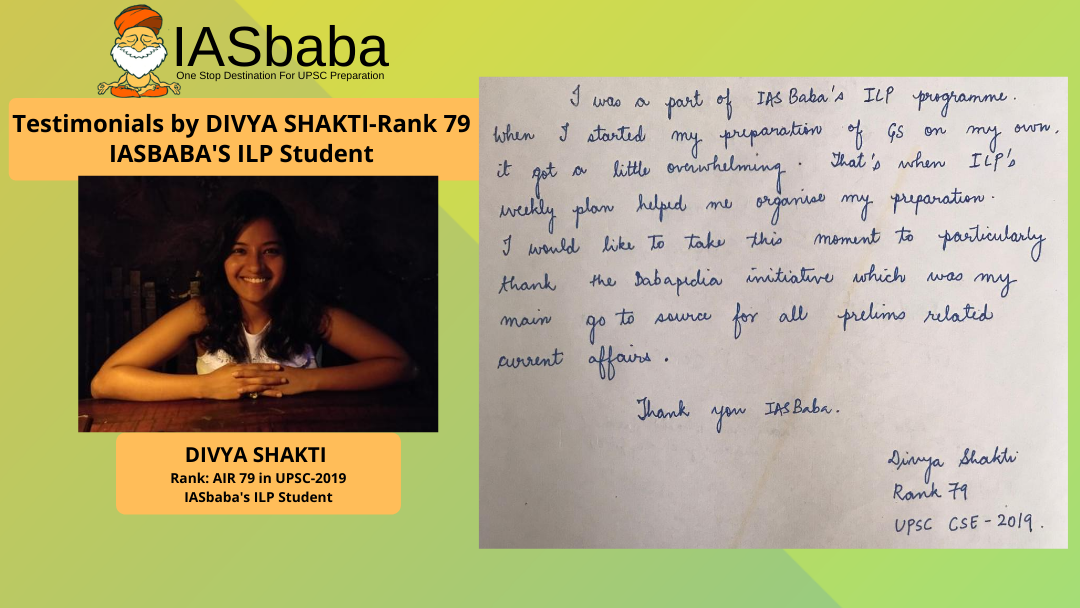 IASbaba
One Stop Destination For UPSC Preparation
Testimonials by DIVYA SHAKTI-Rank 79
IASBABA'S ILP Student
DIVYA SHAKTI
Rank: AIR 79 in UPSC-2019
IASbaba's ILP Student
I was a part of IAS Baba's ILP programme.
When I started my preparation of GS on my own,
it got a little overwhelming. That's when ILP's
weekly plan helped me organise my preparation.
I would like to take this moment to particularly
thank the Babapedia initiative which was my
main go to source for all prelims related
current affairs.
Thank you IASBaba.
Divya Shakti
Rank 79
UPSC CSE - 2019.